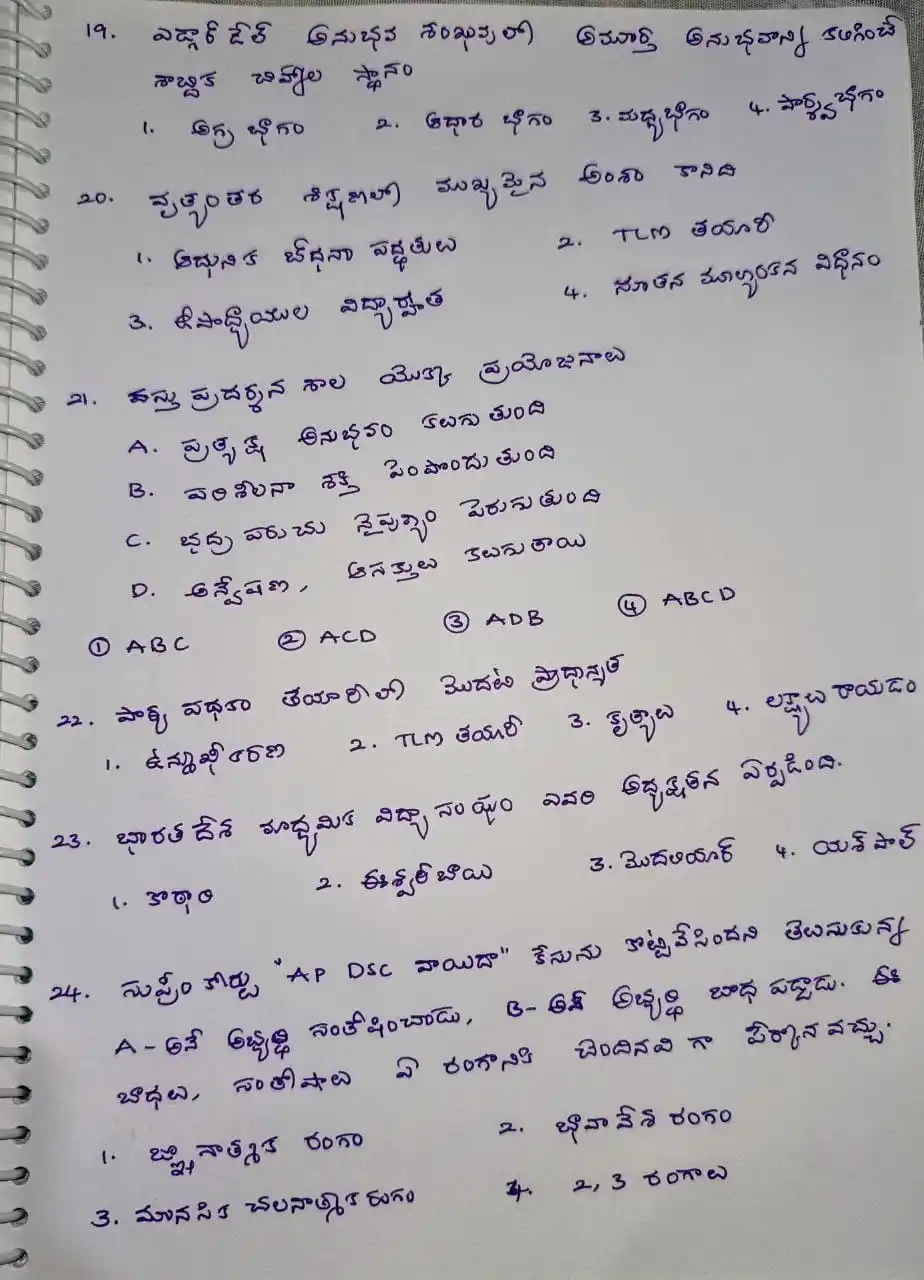 19. ఎడ్గార్ డేల్ అనుభవ శంఖువులో అమూర్త అనుభవాన్ని కలిగించే
శాబ్దిక చిహ్నాల స్థానం
1. అగ్ర భాగం 2. ఆధార భాగం 3. మధ్యభాగం 4. పార్శ్వభాగం
20. వృత్యంతర శిక్షణలో ముఖ్యమైన అంశం కానిది
1. ఆధునిక బోధనా పద్ధతులు 2. TLM తయారీ
3. ఉపాధ్యాయుల విద్యార్హత 4. నూతన మూల్యాంకన విధానం
21. వస్తు ప్రదర్శన శాల యొక్క ప్రయోజనాలు
A. ప్రత్యక్ష అనుభవం కలుగుతుంది
B. పరిశీలనా శక్తి పెంపొందుతుంది
C. భద్రపరుచు నైపుణ్యం పెరుగుతుంది
D. అన్వేషణ, ఆసక్తులు కలుగుతాయి
① ABC ② ACD ③ ADB ④ ABCD
22. పాఠ్య పథకం తయారీలో మొదటి ప్రాధాన్యత
1. ఉన్ముఖీకరణ 2. TLM తయారీ 3. కృత్యాలు 4. లక్ష్యాలు రాయడం
23. భారత దేశ మాధ్యమిక విద్యా సంఘం ఎవరి అధ్యక్షతన ఏర్పడింది.
1. కొఠారి 2. ఈశ్వరీబాయి 3. మొదలియార్ 4. యశ్ పాల్
24. సుప్రీం కోర్టు "AP DSC వాయిదా" కేసును కొట్టివేసిందని తెలుసుకున్న
A - అనే అభ్యర్థి సంతోషించాడు, B - అనే అభ్యర్థి బాధ పడ్డాడు. ఈ
బాధలు, సంతోషాలు ఏ రంగానికి చెందినవి గా పేర్కొనవచ్చు.
1. జ్ఞానాత్మక రంగం 2. భావావేశ రంగం
3. మానసిక చలనాత్మక రంగం 4. 2, 3 రంగాలు